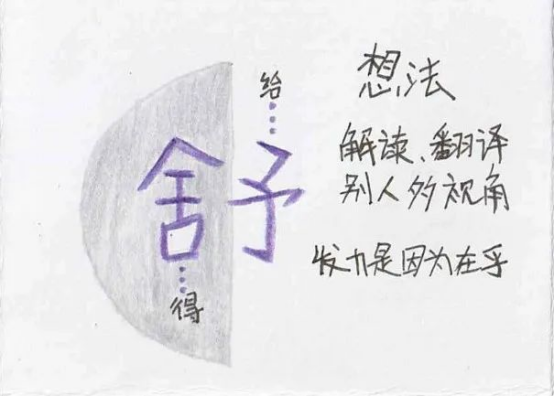 给
舍予
得
想法
解读、翻译
别人的视角
发力是因为在乎